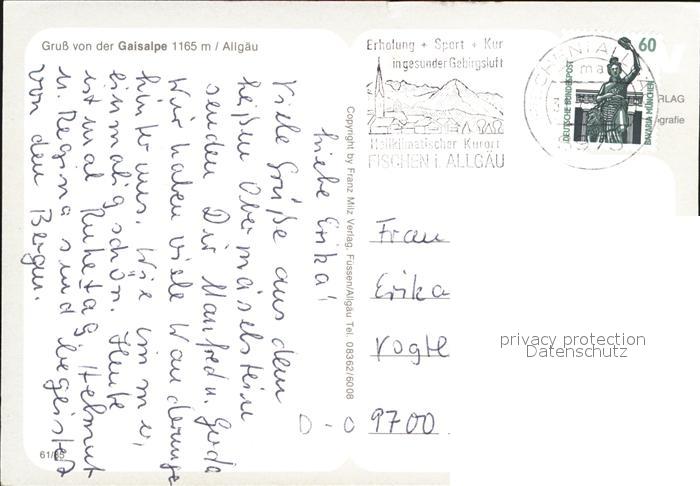 Gruß von der Gaisalpe 1165 m / Allgäu
Liebe Erika!
Viele Grüße aus dem
heißen Obermaiselstein
senden Dir Manfred u. Gerda
Wir haben viele Wanderunge
hinter uns. Wie immer,
einmalig schön. Heute
ist mal Ruhetag. Helmut
u. Regina sind begeistert
von den Bergen.
61/
Copyright by Franz Milz Verlag, Füssen/Allgäu Tel. 08362/6008
Erholung + Sport + Kur
in gesunder Gebirgsluft
Heilklimatischer Kurort
FISCHEN i. ALLGÄU
60
DEUTSCHE BUNDESPOST
BAVARIA MÜNCHEN
RLAG
grafie
Frau
Erika
Vogte
D-O 9700
privacy protection
Datenschutz